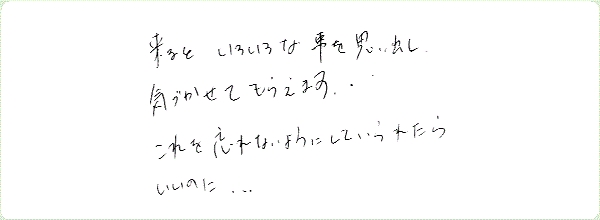 来ると いろいろな 事を思い出し
気づかせてもらえます。・
これを忘れないようにしていられたら
いいのに...